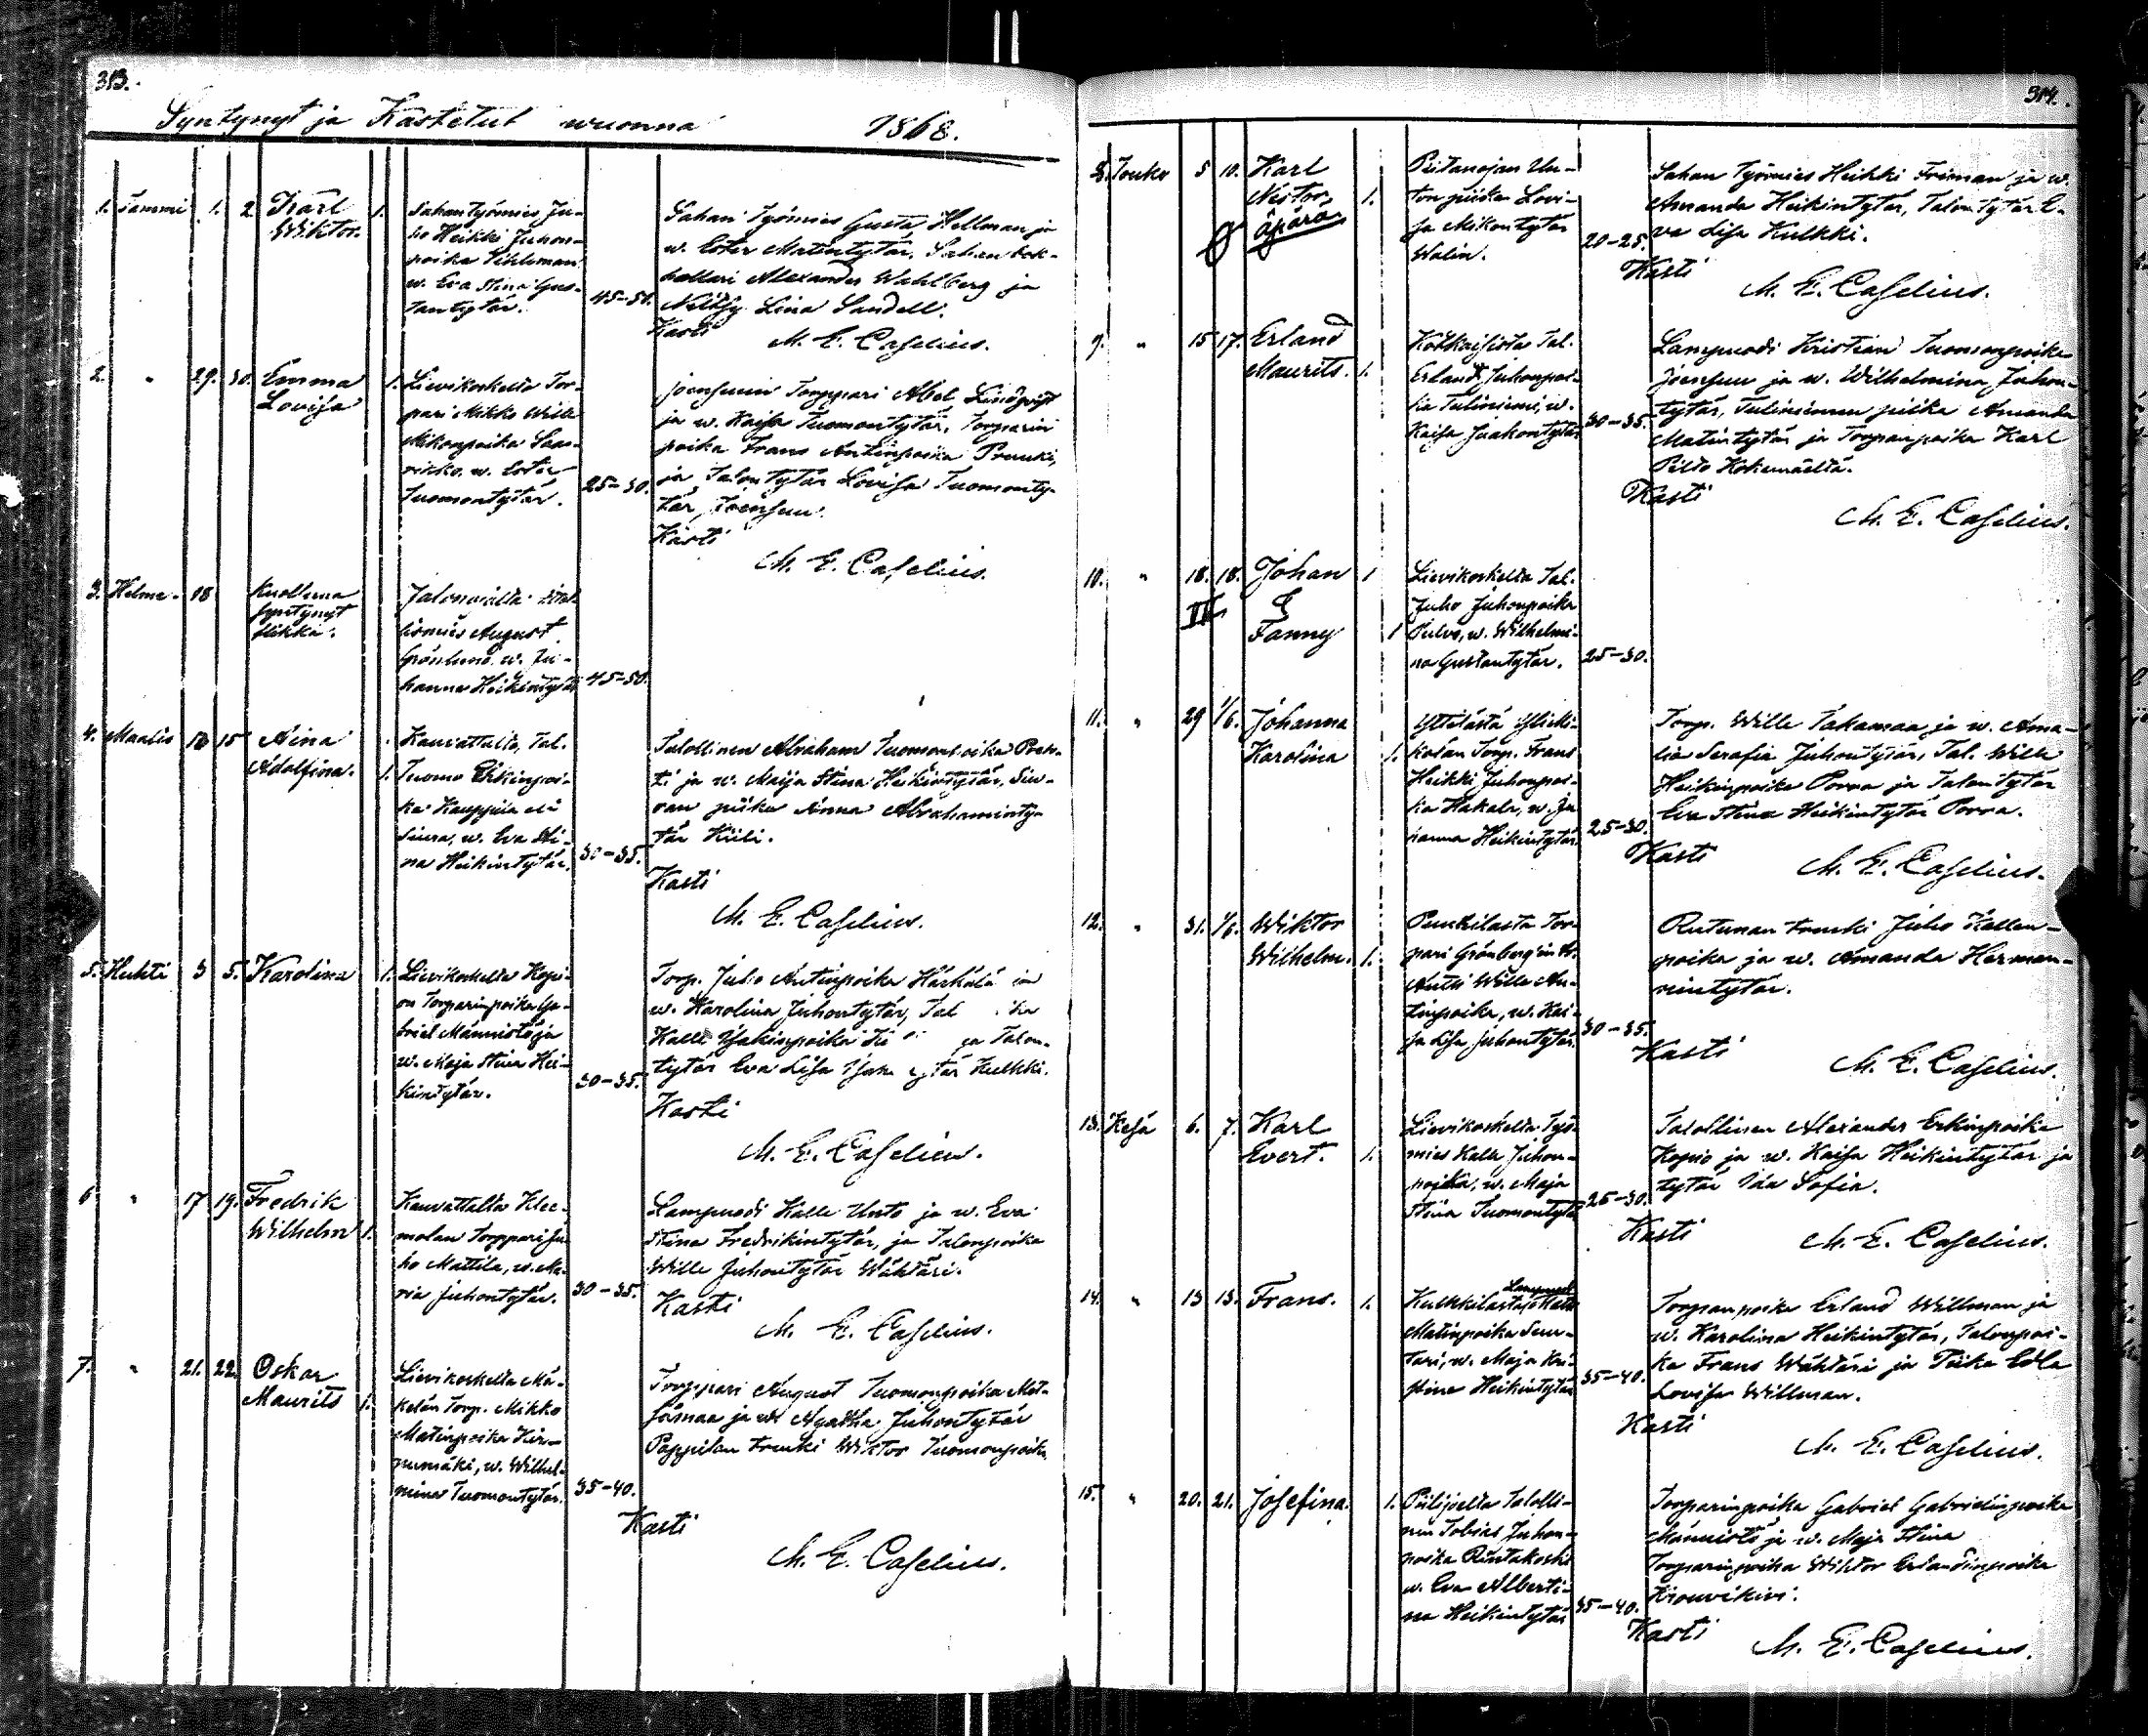 313.
Syntynyt ja Kastetut wuonna 1868.
1. Tammi 1. 2. Karl Wiktor. 1.
Sahan Työmies, Ju-
ho Heikki Juhon-
poika
w. Eva Stina Gus-
tantytär.
45-50.
Sahan Työmies Gusta Hellman ja
w. Ester Matintytär, Sahan bok-
hollari Alexander Wahlberg ja
Lina Sandell.
Kasti
M. E. Caselius.
2. " 29. 30. Emma Lovisa 1.
Lievikoskelta Tor-
pari Mikko Wille
Mikonpoika Saa-
w. Ester
Tuomontytär.
25-30.
Joensuun Torppari Abel Lindqvist
ja w. Kaisa Tuomontytär, Torparin
poika Frans Antinpoika Prunki,
ja Talontytär Lovisa Tuomonty-
tär, Joensuu.
Kasti
M. E. Caselius.
3. Helmi. 18
Kuolluna
syntynyt
flikka.
August
Grönlund, w. Ju-
hanna Heikintytär
45-50.
4. Maalis 15 Aina Adolfina. 1.
Kauvattalta, Tal.
Tuomo Erkinpoi-
ka Kauppila eli
Siura, w. Eva Sti-
na Heikintytär.
30-35.
Talollinen Abraham Tuomonpoika
ja w. Maija Stina Heikintytär, Siu-
ran piika Anna Abrahaminty-
tär Kiili.
Kasti
M. E. Caselius.
5. Huhti 3 5. Karolina 1.
Lievikoskelta Kopi-
on Torparinpoika Ga-
briel Männistö ja
w. Maja Stina Hei-
kintytär.
30-35.
Torp. Juho Antinpoika Härkälä ja
w. Karolina Juhontytär, Tal
Kalle Isakinpoika ja Talon-
tytär Eva Lisa Kulkki.
Kasti
M. E. Caselius.
6 " 17 19. Fredrik Wilhelm 1.
Kauvattalta Klee-
molan Torppari Ju-
ho Mattila, w. Ma-
ria Juhontytär.
30-35.
Lampuodi Kalle Unto ja w. Eva
Stina Fredrikintytär, ja Talonpoika
Wille Juhontytär Wähtäri.
Kasti
M. E. Caselius.
7. " 21. 22. Oskar Maurits 1.
Lievikoskelta Mä-
kelän Torp. Mikko
Matinpoika Kir-
w. Wilhel-
mina Tuomontytär.
35-40.
Torppari August Tuomonpoika Met-
sämaa ja w. Agatha Juhontytär
Pappilan Frenki Wiktor Tuomonpoika
Kasti
M. E. Caselius.
314.
8. Touko 5 10. Karl Nestor, 1.
äpärä
Un-
ton piika Lovi-
sa Mikontytär
Walin.
20-25.
Sahan Työmies Heikki Friman ja w.
Amanda Heikintytär, Talontytär E-
va Lisa Kulkki.
Kasti
M. E. Caselius.
9. " 15 17. Erland Maurits. 1.
Tal.
Erland Juhonpoi-
ka Tuliniemi, w.
Kaisa Jaakontytär
30-35.
Lampuodi Kristian Tuomonpoika
Joensuu ja w. Wilhelmina Juhon-
tytär, Tuliniemen piika Amanda
Matintytär ja Torpanpoika Karl
Kokemäeltä.
Kasti
M. E. Caselius.
10. " 18. 18. Johan 1
& Fanny 1
Lievikoskelta Tal.
Juho Juhonpoika
w. Wilhelmi-
na Gustantytär.
25-30.
11. " 29 1/6. Johanna Karolina 1.
Yttilästä
Torp. Frans
Heikki Juhonpoi-
ka Hakala, w. Ju-
hanna Heikintytär
25-30.
Torp. Wille Takamaa ja w. Ama-
lia Serafia Juhontytär, Tal. Wille
Heikinpoika Porra ja Talontytär
Eva Stina Heikintytär Porra.
Kasti
M. E. Caselius.
12. " 31. 1/6. Wiktor Wilhelm. 1.
Pember
Tor-
pari Grönberg
Antti Wille An-
tinpoika, w. Kai-
sa Lisa Juhontytär
30-35.
Frenki Juho Kallen-
poika ja w. Amanda Herman-
nintytär.
Kasti
M. E. Caselius.
13. Kesä 6. 7. Karl Evert. 1.
Lievikoskelta Työ-
mies Kalle Juhon-
poika, w. Maja
Stina Tuomontytär
25-30.
Talollinen Alexander Erkinpoika
Kopio ja w. Kaisa Heikintytär ja
tytär Ida Sofia.
Kasti
M. E. Caselius.
14. " 13 13. Frans. 1.
Kulkkilasta
Matinpoika
w. Maja Kri-
stina Heikintytär
35-40.
Torpanpoika Erland Willman ja
w. Karolina Heikintytär, Talonpoi-
ka Frans Wähtäri ja Piika Edla
Lovisa Willman.
Kasti
M. E. Caselius.
15. " 20. 21. Josefina. 1.
Talolli-
nen Tobias Juhon-
poika Rintakoski
w. Eva Alberti-
na Heikintytär
35-40.
Torparinpoika Gabriel Gabrielinpoika
Männistö ja w. Maja Stina
Torparinpoika Wiktor Erlandinpoika
Kasti
M. E. Caselius.